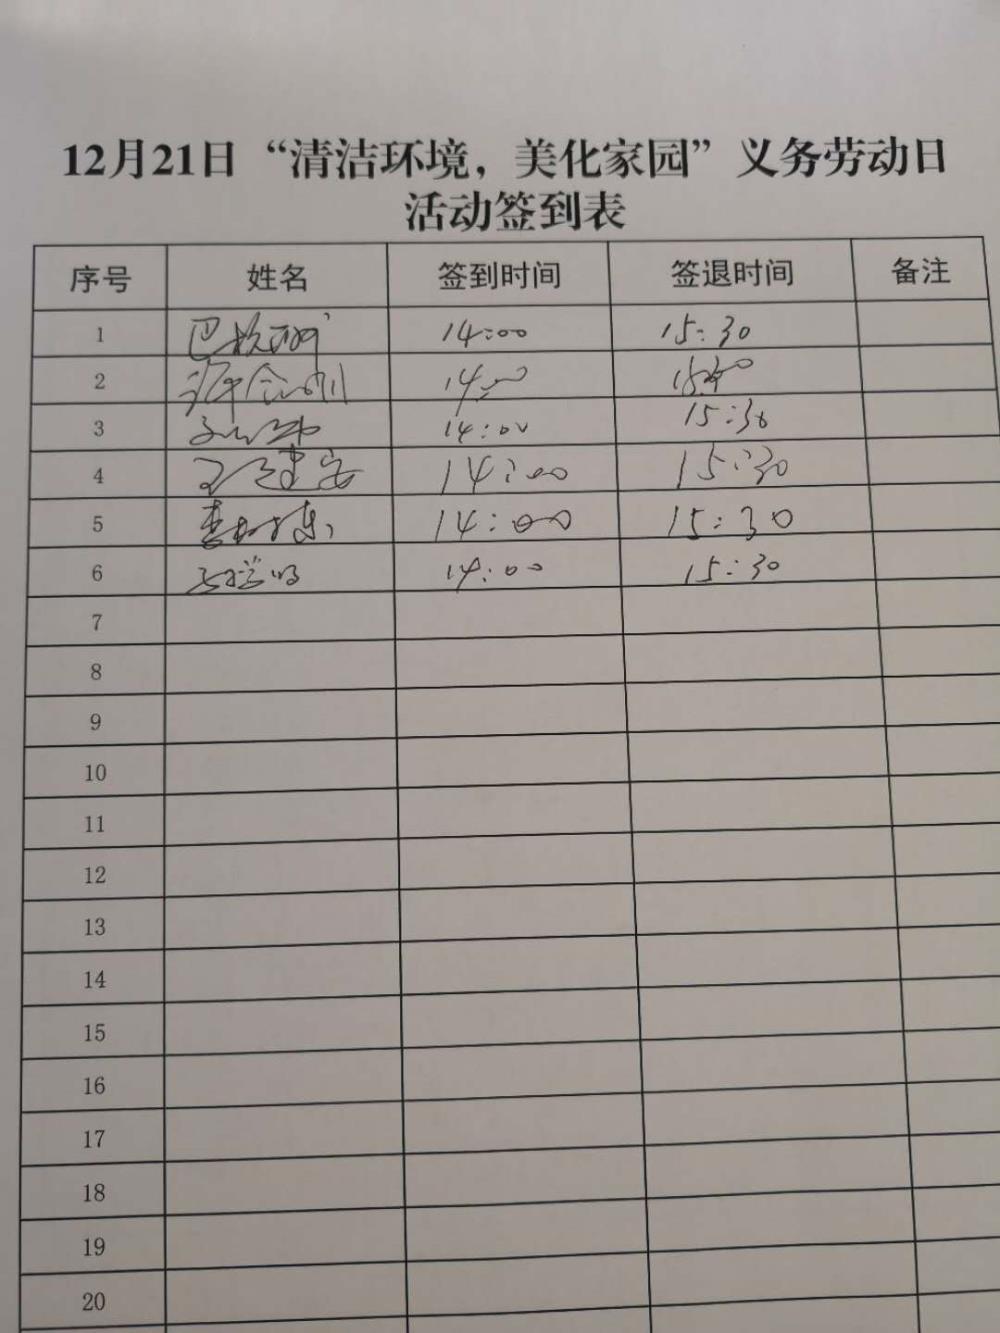 12月21日“清洁环境，美化家园”义务劳动日
活动签到表
序号 姓名 签到时间 签退时间 备注
1 14:00 15:30
2 14:00
3 14:00 15:30
4 王建安 14:00 15:30
5 14:00 15:30
6 14:00 15:30
7
8
9
10
11
12
13
14
15
16
17
18
19
20